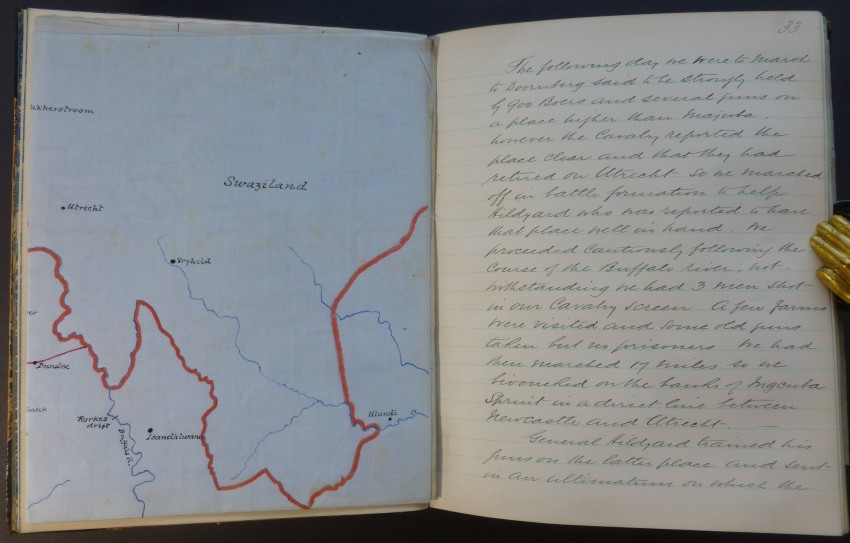 ukkerstroom
Swaziland
Utrecht
Vryheid
Dundee
Rorkes
drift
Isandlwana
Buffalo R.
Ulundi
33
The following day we were to march
to Doornberg said to be strongly held
by 900 Boers and several guns on
a place higher than Majuba.
however the Cavalry reported the
place clear and that they had
retired on Utrecht. So we marched
off in battle formation to help
Hildyard who was reported to have
that place well in hand. We
proceeded cautiously following the
course of the Buffalo river, not-
withstanding we had 3 men shot
in our Cavalry screen. A few farms
were visited and some old guns
taken but no prisoners. We had
then marched 17 miles so we
bivouched on the banks of Ingcuba
Spruit in a direct line between
Newcastle and Utrecht. —
General Hildyard trained his
guns on the latter place and sent
in an ultimatum on which the